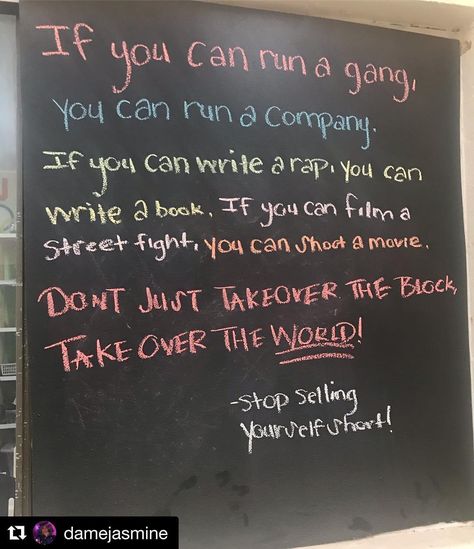 If you can run a gang,
you can run a company.
If you can write a rap, you can
write a book. If you can film a
street fight, you can shoot a movie.
DONT JUST TAKEOVER THE BLOCK,
TAKE OVER THE WORLD!
-Stop selling
yourself short!
damejasmine